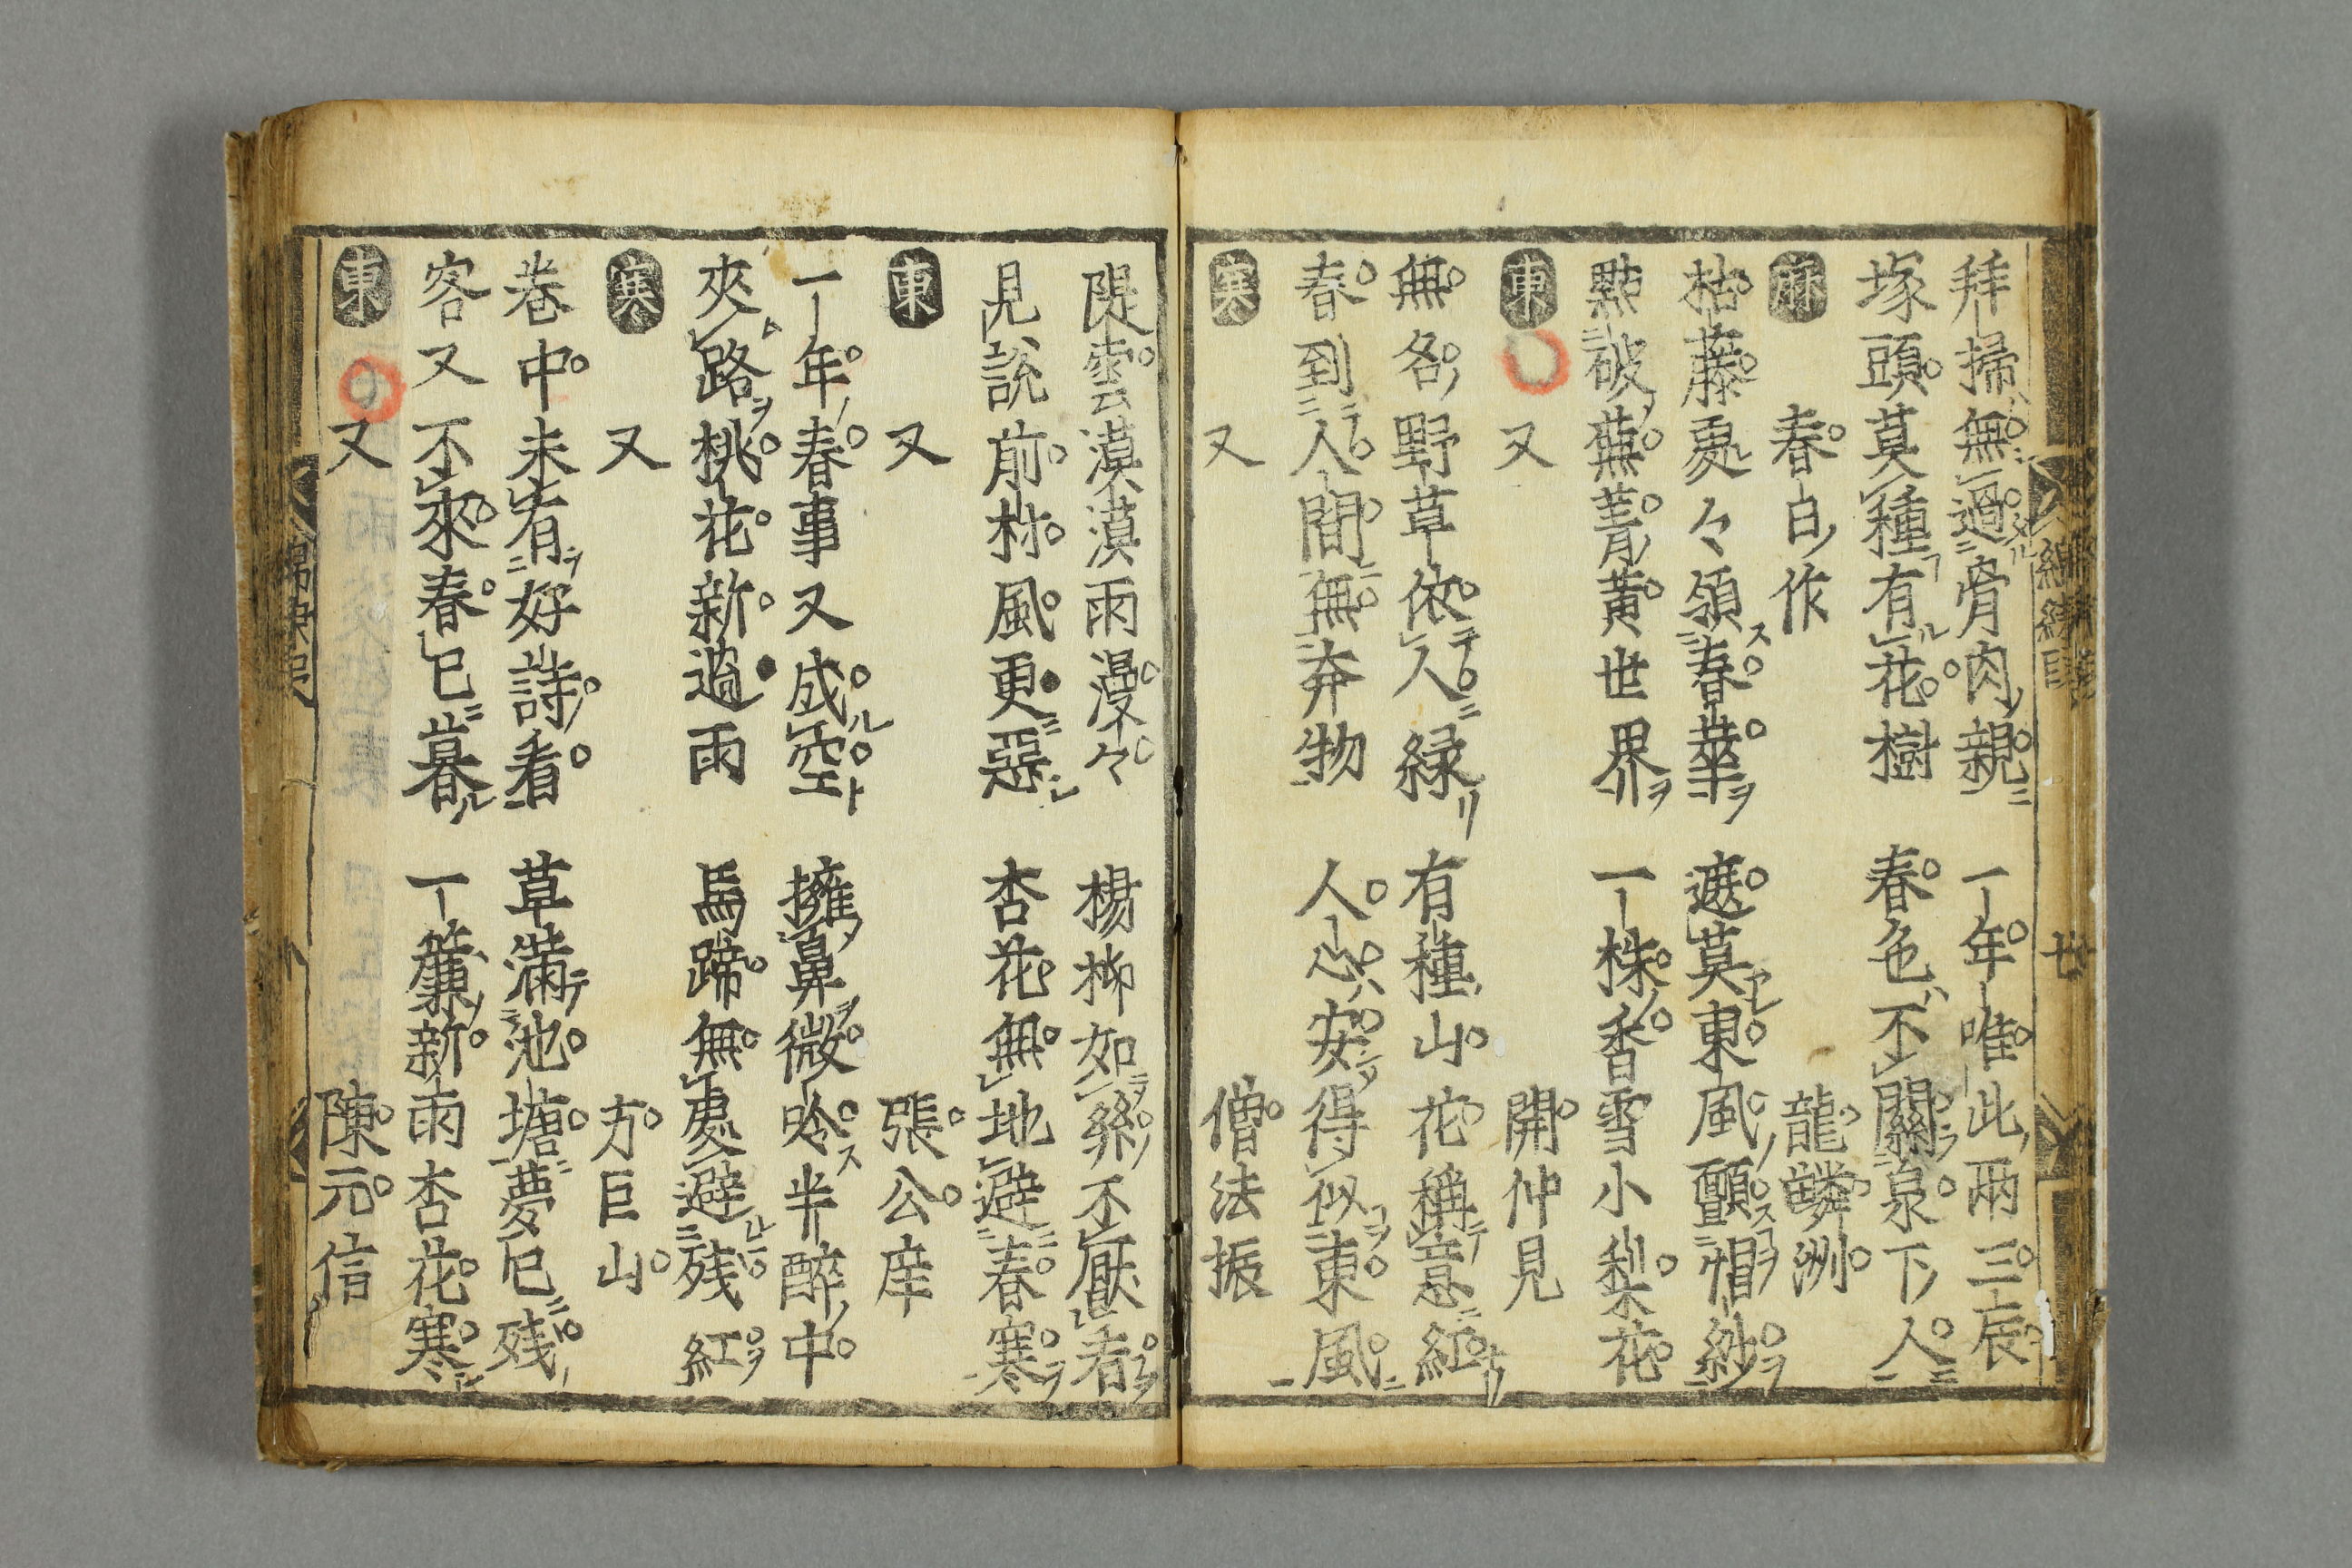 拜掃無過骨肉親　一年唯此兩三辰
塚頭莫種有花樹　春色不關泉下人
麻　春日作　龍麟洲
枯藤更々領春華　遮莫東風顫帽紗
點破蕪菁黃世界　一株香雪小梨花
東　又　開仲見
無名野草依人緑　有種山花稱意紅
春到人間無弃物　人心安得似東風
寒　又　僧法振
隄雲漠漠雨漫々　楊柳如絲不厭看
見說前林風更惡　杏花無地避春寒
東　又　張公庠
一年春事又成空　擁鼻微吟半醉中
夾路桃花新過雨　馬蹄無處避残紅
寒　又　方巨山
巻中未有好詩看　草滿池塘夢已残
客又不來春已暮　一簾新雨杏花寒
東　又　陳元信